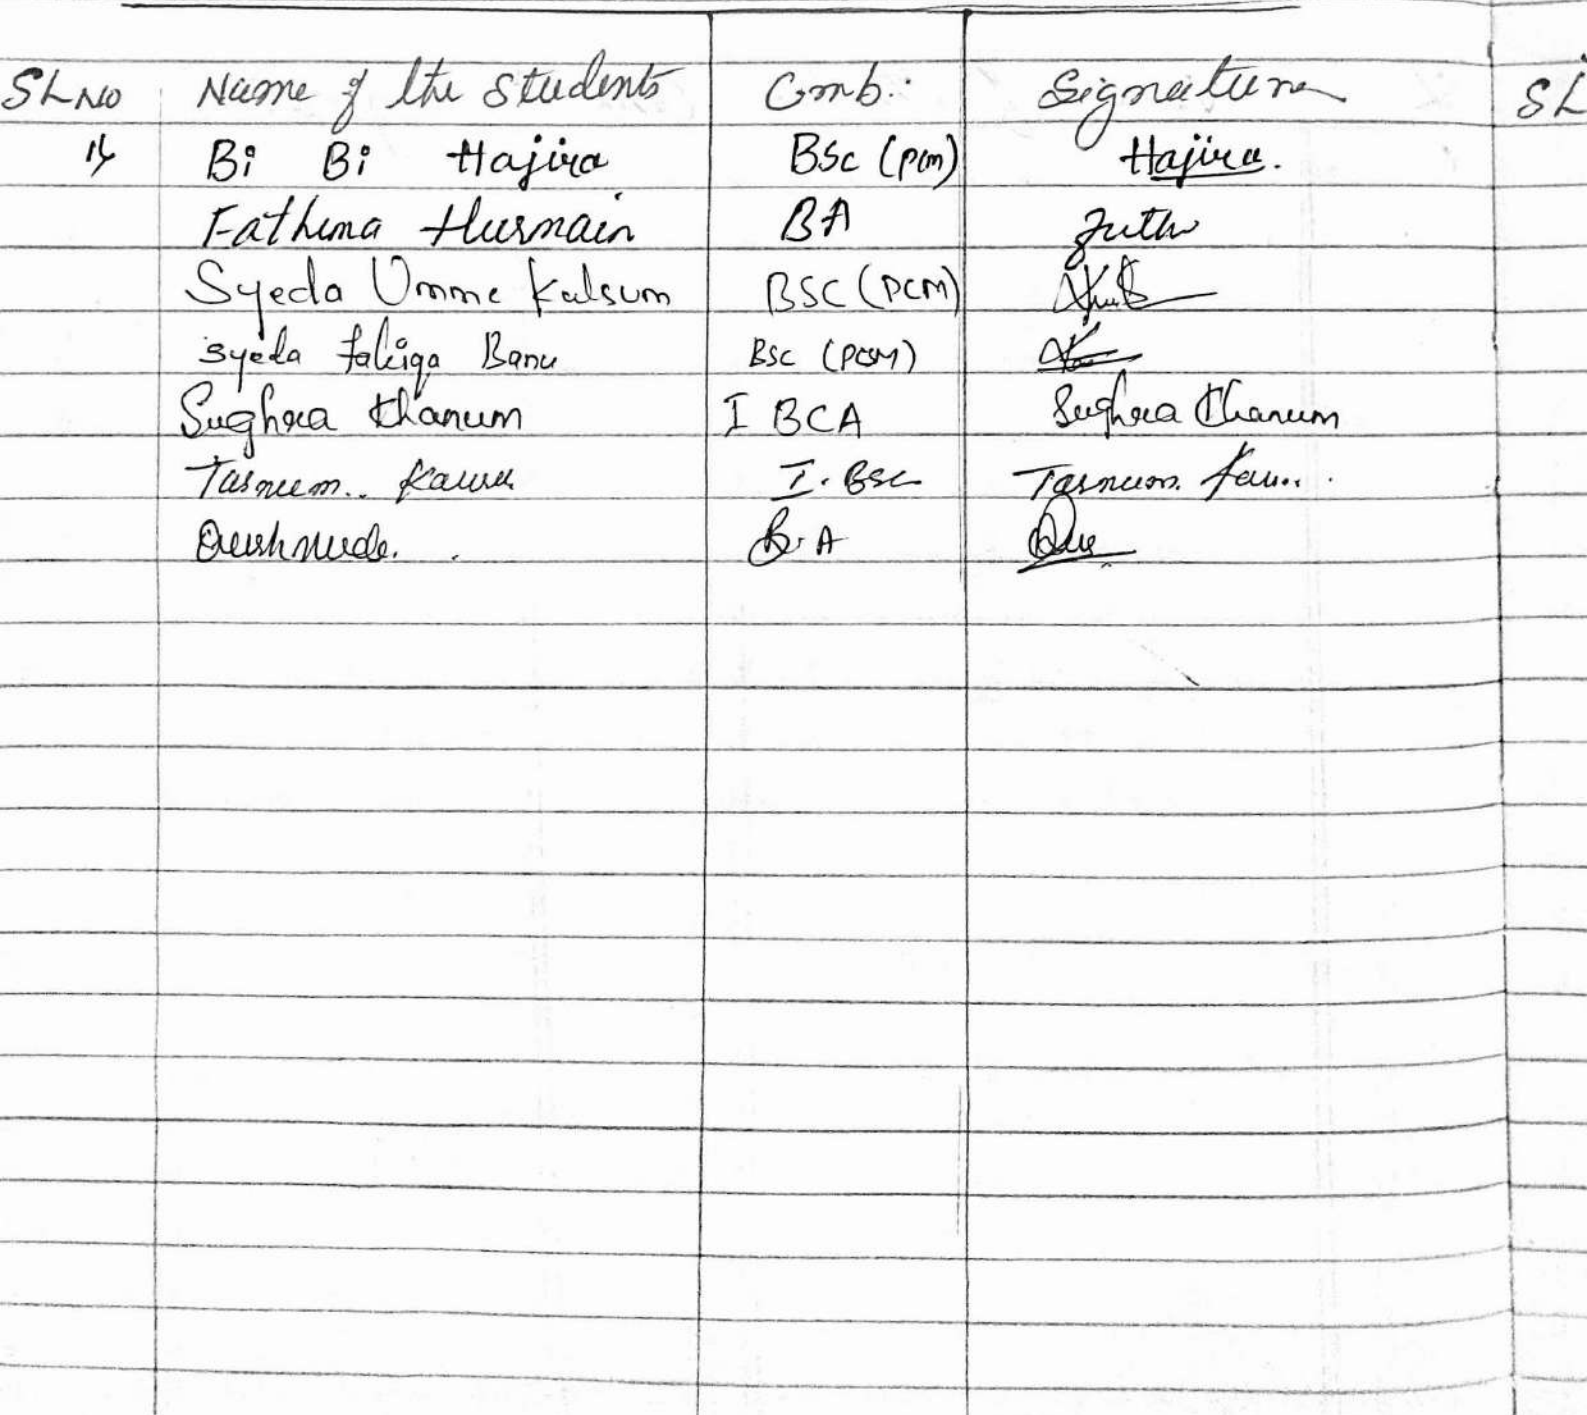 SL NO Name of the Students Comb. Signature SL
1) Bi Bi Hajira BSc (PCM) Hajira.
Fathima Husnain BA
Syeda Umme Kulsum BSC (PCM)
Syeda Banu BSC (PCM)
Sughra Khanum I BCA Sughra Khanum
Tasneem I. BSc Tasneem
B.A